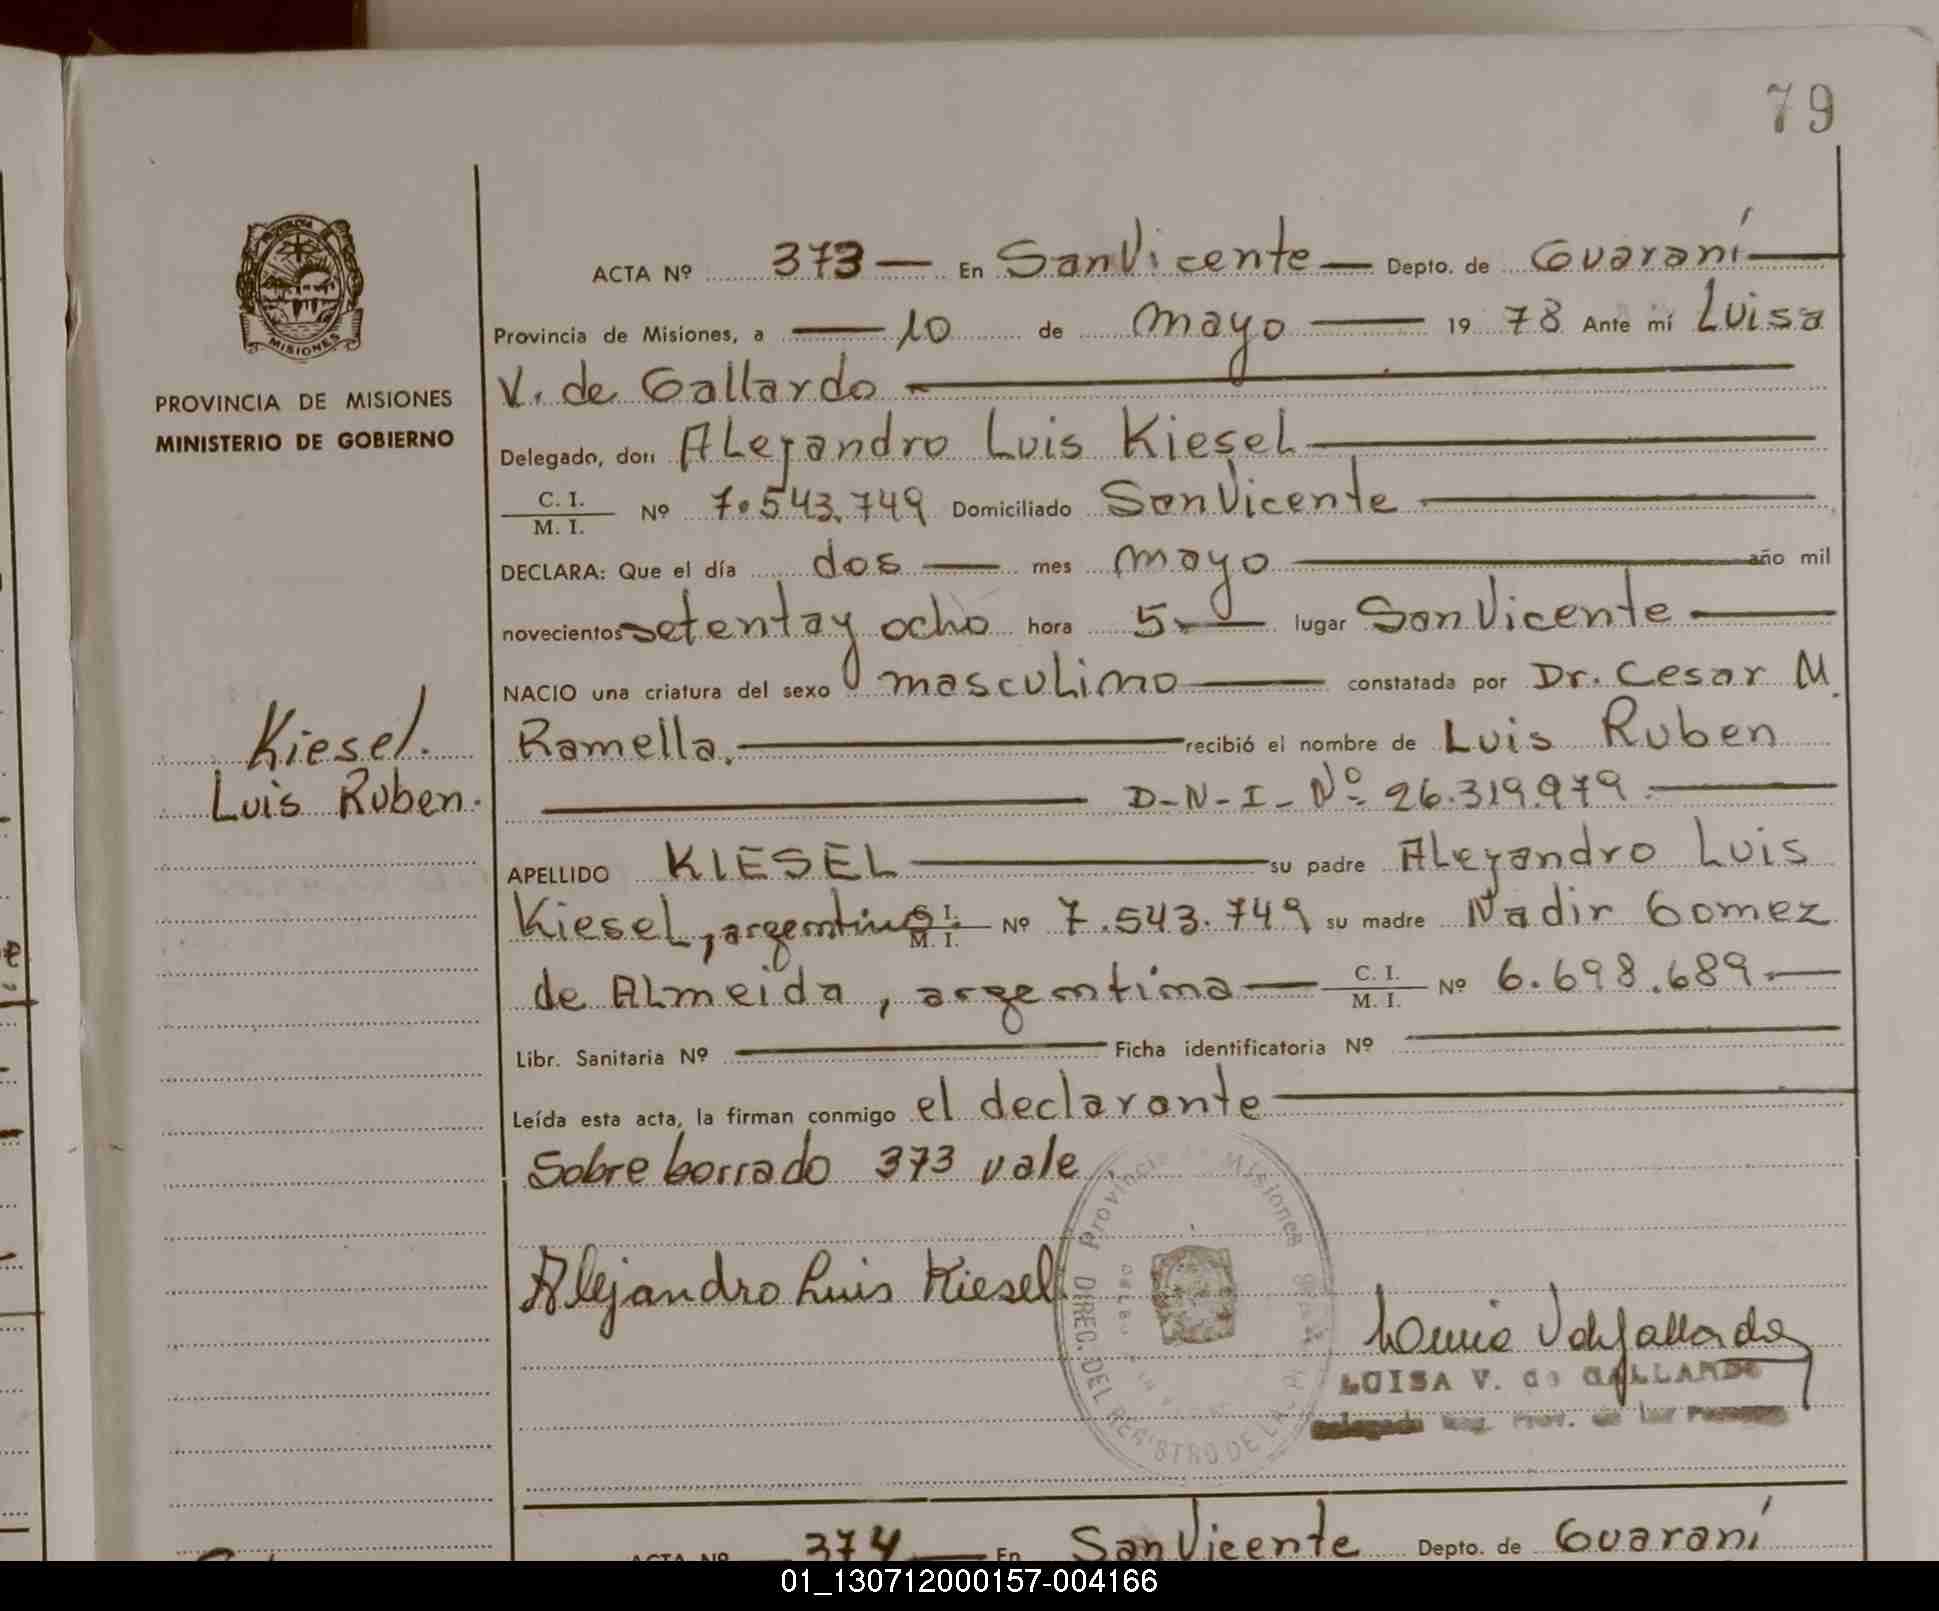 79
MISIONES
PROVINCIA DE MISIONES
MINISTERIO DE GOBIERNO
Kiesel.
Luis Ruben.
ACTA Nº 373 — En San Vicente — Depto. de Guaraní —
Provincia de Misiones, a — 10 de mayo — 19 78 Ante mí Luisa
V. de Gallardo —
Delegado, don Alejandro Luis Kiesel —
C. I.
M. I. Nº 7.543.749 Domiciliado San Vicente —
DECLARA: Que el día dos — mes mayo — año mil
novecientos setenta y ocho hora 5. — lugar San Vicente —
NACIO una criatura del sexo masculino — constatada por Dr. Cesar M.
Ramella. — recibió el nombre de Luis Ruben
— D-N-I- Nº 26.319.979. —
APELLIDO KIESEL — su padre Alejandro Luis
Kiesel, argentino C. I. M. I. Nº 7.543.749 su madre Nadir Gomez
de Almeida, argentina — C. I. M. I. Nº 6.698.689. —
Libr. Sanitaria Nº — Ficha identificatoria Nº —
Leída esta acta, la firman conmigo el declarante —
Sobre borrado 373 vale
Provincia de Misiones
DIREC. DEL REGISTRO DE LAS
Alejandro Luis Kiesel
Luisa V de Gallardo
LUISA V. de GALLARDO
Delegada Reg. Prov. de las Personas
ACTA Nº 374 — En San Vicente Depto. de Guaraní
01_130712000157-004166